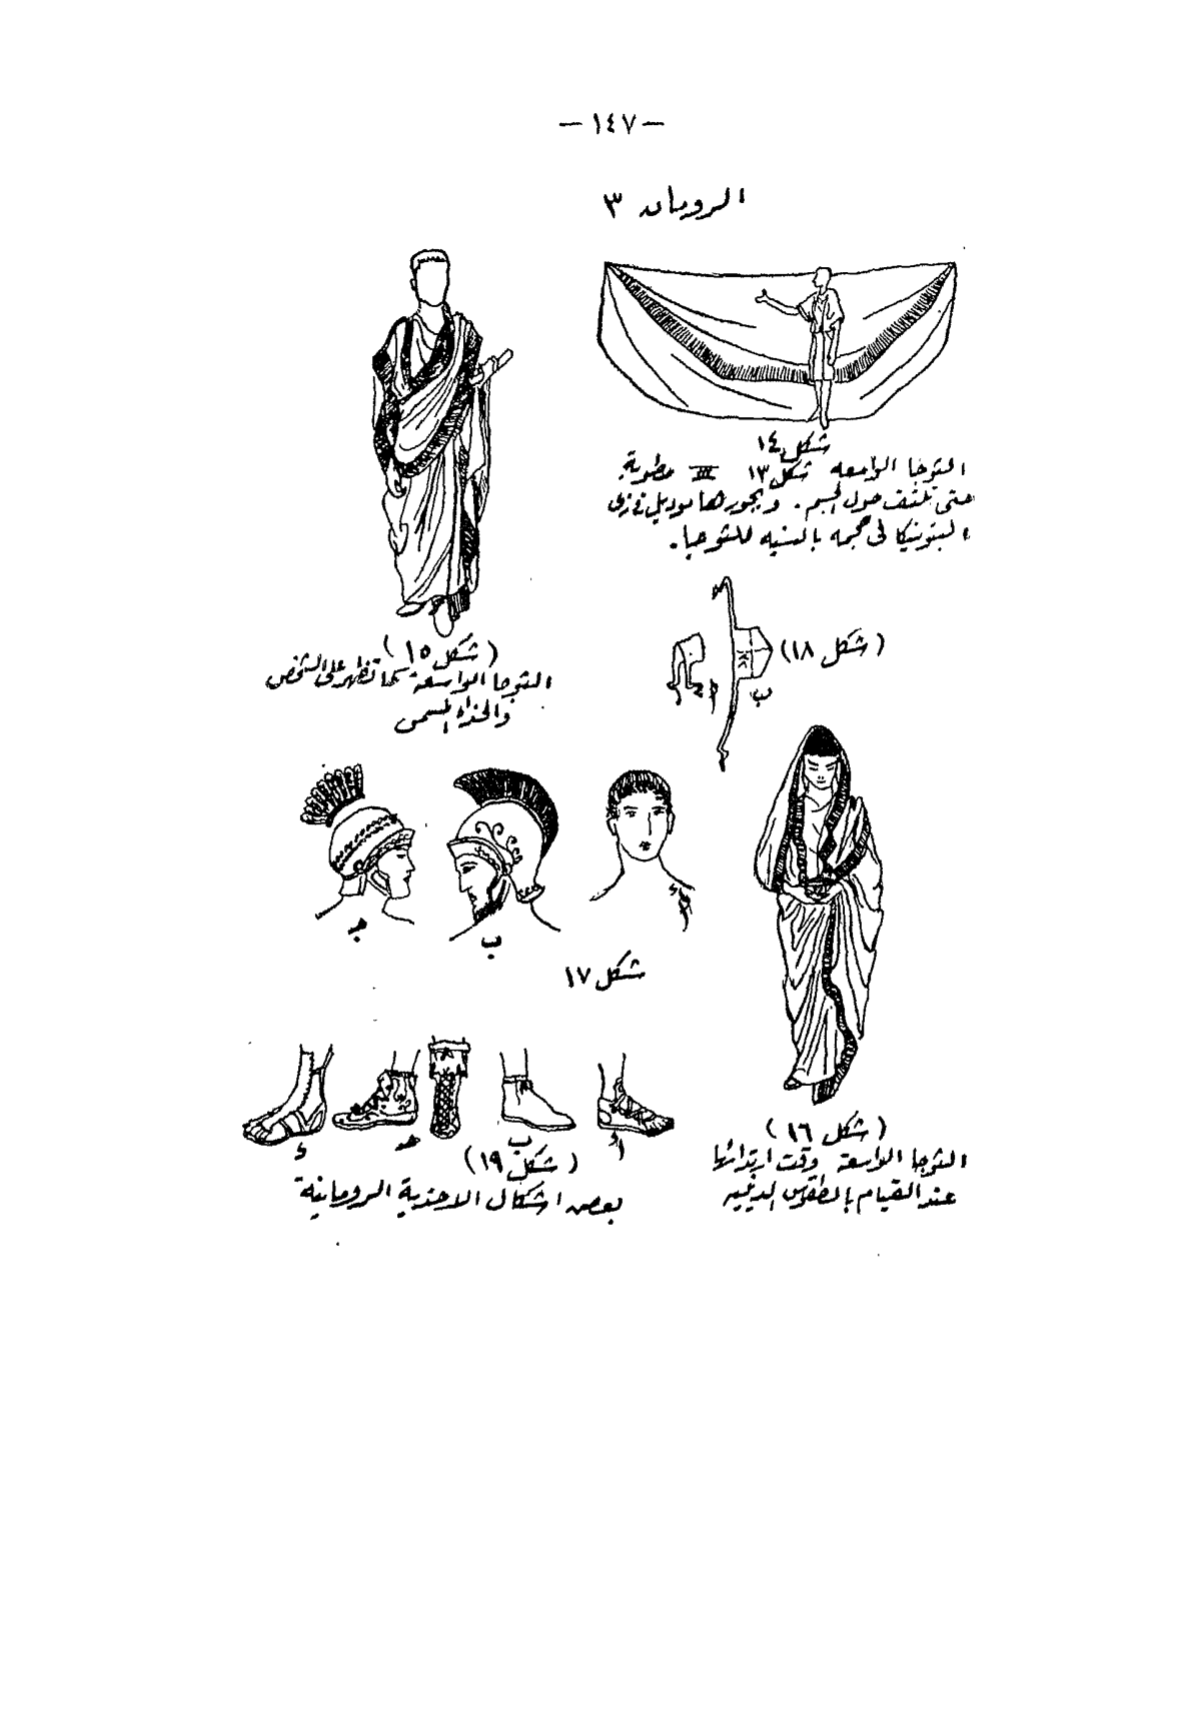 — ١٤٧ —
الرومان ٣
شكل ١٤
الثوجا الواسعة شكل ١٣ III مطوية
حتى تلتف حول الجسم . وبجورها موديل فى زى
التونيكا فى حجمه بالنسبه للثوجا .
( شكل ١٥ )
الثوجا الواسعة كما تظهر على الشخص
والحذاء المسمى
( شكل ١٨ )
أ
ب
أ
ب
جـ
شكل ١٧
( شكل ١٦ )
الثوجا الواسعة وقت ارتدائها
عند القيام بالطقوس الدينيه
أ
ب
حـ
د
( شكل ١٩ )
بعض اشكال الاحذية الرومانية